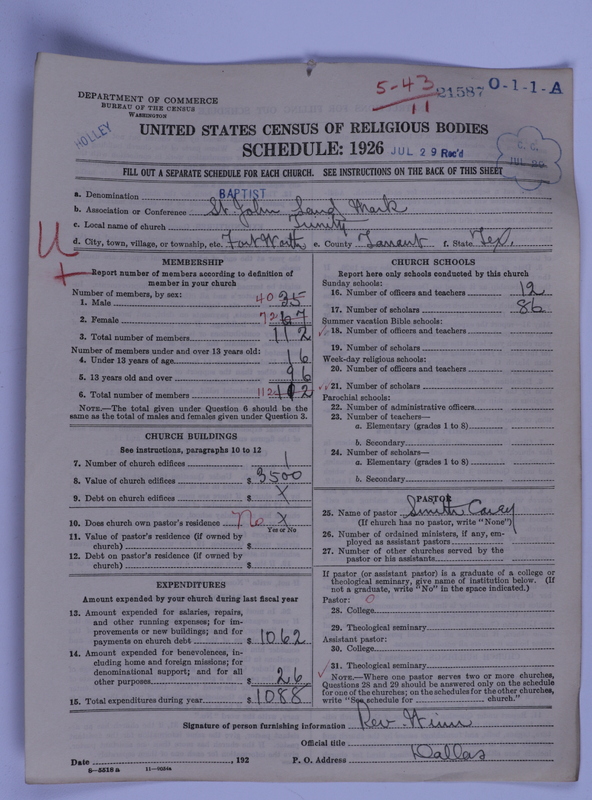 5-43
11
21587
O-1-1-A
DEPARTMENT OF COMMERCE
BUREAU OF THE CENSUS
WASHINGTON
HOLLEY
UNITED STATES CENSUS OF RELIGIOUS BODIES
SCHEDULE: 1926 JUL 29 Rec'd
C. C.
JUL 29
FILL OUT A SEPARATE SCHEDULE FOR EACH CHURCH. SEE INSTRUCTIONS ON THE BACK OF THIS SHEET
a. Denomination BAPTIST
b. Association or Conference St. John Land Mark
c. Local name of church Trinity
d. City, town, village, or township, etc. Fort Worth e. County Tarrant f. State Tex.
MEMBERSHIP
Report number of members according to definition of
member in your church
Number of members, by sex:
1. Male 40 35
2. Female 72 67
3. Total number of members 112
Number of members under and over 13 years old:
4. Under 13 years of age 16
5. 13 years old and over 96
6. Total number of members 112 112
NOTE.—The total given under Question 6 should be the
same as the total of males and females given under Question 3.
CHURCH BUILDINGS
See instructions, paragraphs 10 to 12
7. Number of church edifices 1
8. Value of church edifices $ 3500
9. Debt on church edifices $ X
10. Does church own pastor's residence No X
Yes or No
11. Value of pastor's residence (if owned by
church) $
12. Debt on pastor's residence (if owned by
church) $
EXPENDITURES
Amount expended by your church during last fiscal year
13. Amount expended for salaries, repairs,
and other running expenses; for im-
provements or new buildings; and for
payments on church debt $ 1062
14. Amount expended for benevolences, in-
cluding home and foreign missions; for
denominational support; and for all
other purposes $ 26
15. Total expenditures during year $ 1088
CHURCH SCHOOLS
Report here only schools conducted by this church
Sunday schools:
16. Number of officers and teachers 12
17. Number of scholars 86
Summer vacation Bible schools:
18. Number of officers and teachers
19. Number of scholars
Week-day religious schools:
20. Number of officers and teachers
21. Number of scholars
Parochial schools:
22. Number of administrative officers
23. Number of teachers—
a. Elementary (grades 1 to 8)
b. Secondary
24. Number of scholars—
a. Elementary (grades 1 to 8)
b. Secondary
PASTOR
25. Name of pastor Smith Carey
(If church has no pastor, write "None")
26. Number of ordained ministers, if any, em-
ployed as assistant pastors
27. Number of other churches served by the
pastor or his assistants
If pastor (or assistant pastor) is a graduate of a college or
theological seminary, give name of institution below. (If
not a graduate, write "No" in the space indicated.)
Pastor: 0
28. College
29. Theological seminary
Assistant pastor:
30. College
31. Theological seminary
NOTE.—Where one pastor serves two or more churches,
Questions 28 and 29 should be answered only on the schedule
for one of the churches; on the schedules for the other churches,
write "See schedule for church."
Signature of person furnishing information Rev. Winn
Official title
Date , 192 P. O. Address Dallas
8-5518 a 11-9034a